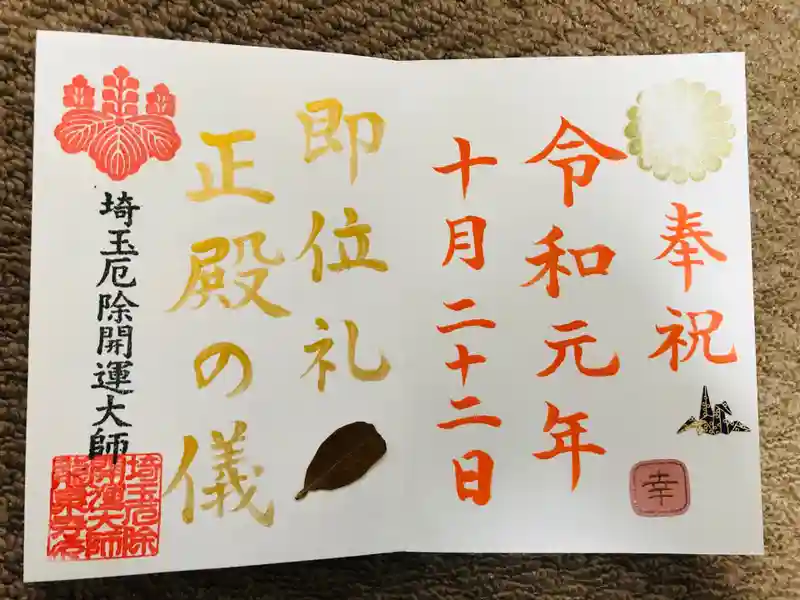 奉祝
令和元年
十月二十二日
即位礼
正殿の儀
埼玉厄除開運大師
幸
埼玉厄除
開運大師
龍泉寺